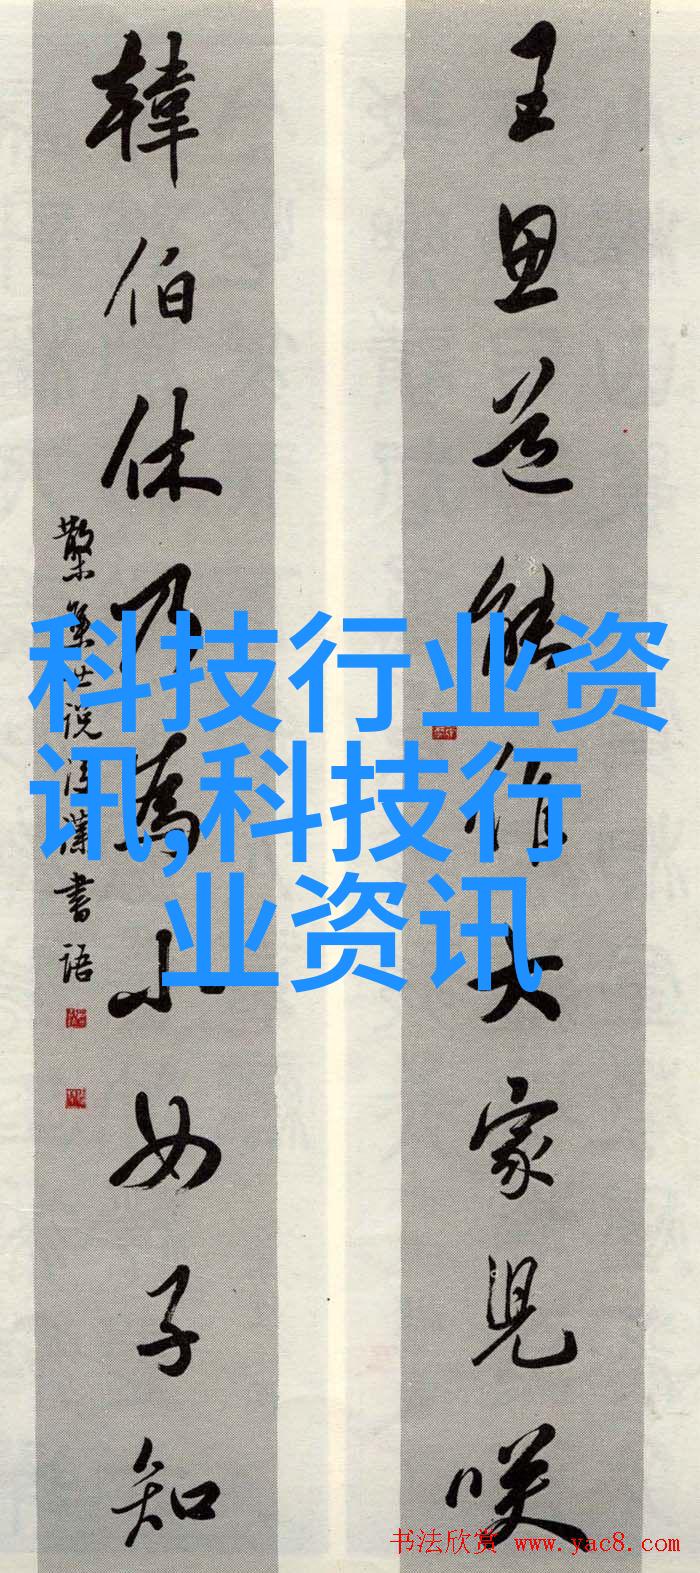 王思道能作大家兒咲
韓伯休乃為小女子知
科技行业资
讯,科技行
业资讯
书法欣赏 www.yac8.com